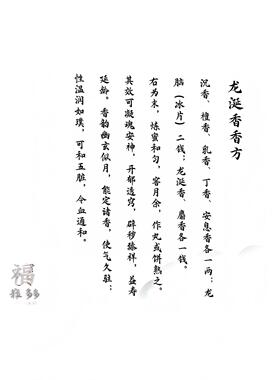 龙涎香香方
沉香、檀香、乳香、丁香、安息香各一两；龙
脑（冰片）二钱；龙涎香、麝香各一钱。
右为末，炼蜜和匀，窖月余，作丸或饼熟之。
其效可凝魂安神，开郁透窍，辟秽臻祥，益寿
延龄。香韵幽玄似月，能定诸香，使气久驻；
性温润如璞，可和五脏，令血通和。
福